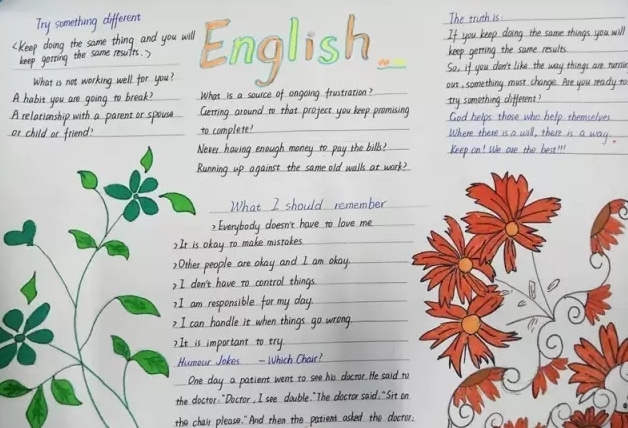 Try something different
<Keep doing the same thing and you will
keep getting the same results.>
What is not working well for you?
A habit you are going to break?
A relationship with a parent or spouse
or child or friend?
English
What is a source of ongoing frustration?
Getting around to that project you keep promising
to complete?
Never having enough money to pay the bills?
Running up against the same old walls at work?
What I should remember
>Everybody doesn't have to love me
>It is okay to make mistakes
>Other people are okay and I am okay.
>I don't have to control things
>I am responsible for my day.
>I can handle it when things go wrong.
>It is important to try.
Humour Jokes —Which Chair?
One day a patient went to see his doctor. He said to
the doctor. "Doctor, I see double." The doctor said. "Sit on
the chair please." And then the patient asked the doctor.
The truth is
If you keep doing the same things you will
keep getting the same results.
So, if you don't like the way things are turnin
out, something must change. Are you ready to
try something different?
God helps those who help themselves
Where there is a will, there is a way.
Keep on! We are the best!!!